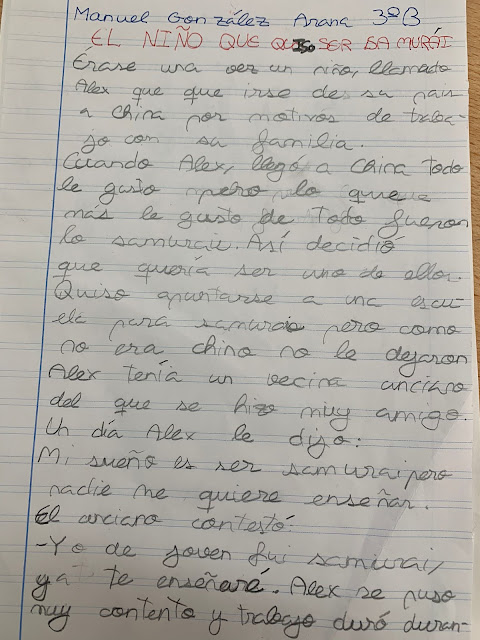 Manuel González Arana 3ºB
EL NIÑO QUE QUISO SER SAMURÁI
Érase una vez un niño, llamado
Alex que que irse de su pais
a China por motivos de traba-
jo con su familia.
Cuando Alex, llegó a China todo
le gusto pero lo que
más le gusto de todo fueron
lo samurais. Así decidió
que quería ser uno de ellos.
Quiso apuntarse a una escu-
ela para samurais pero como
no era chino no le dejaron
Alex tenía un vecina anciano
del que se hizo muy amigo.
Un día Alex le dijo:
Mi sueño es ser samurai pero
nadie me quiere enseñar.
El anciano contestó:
-Yo de joven fui samurai,
ya te enseñaré. Alex se puso
muy contento y trabajo duró duran-